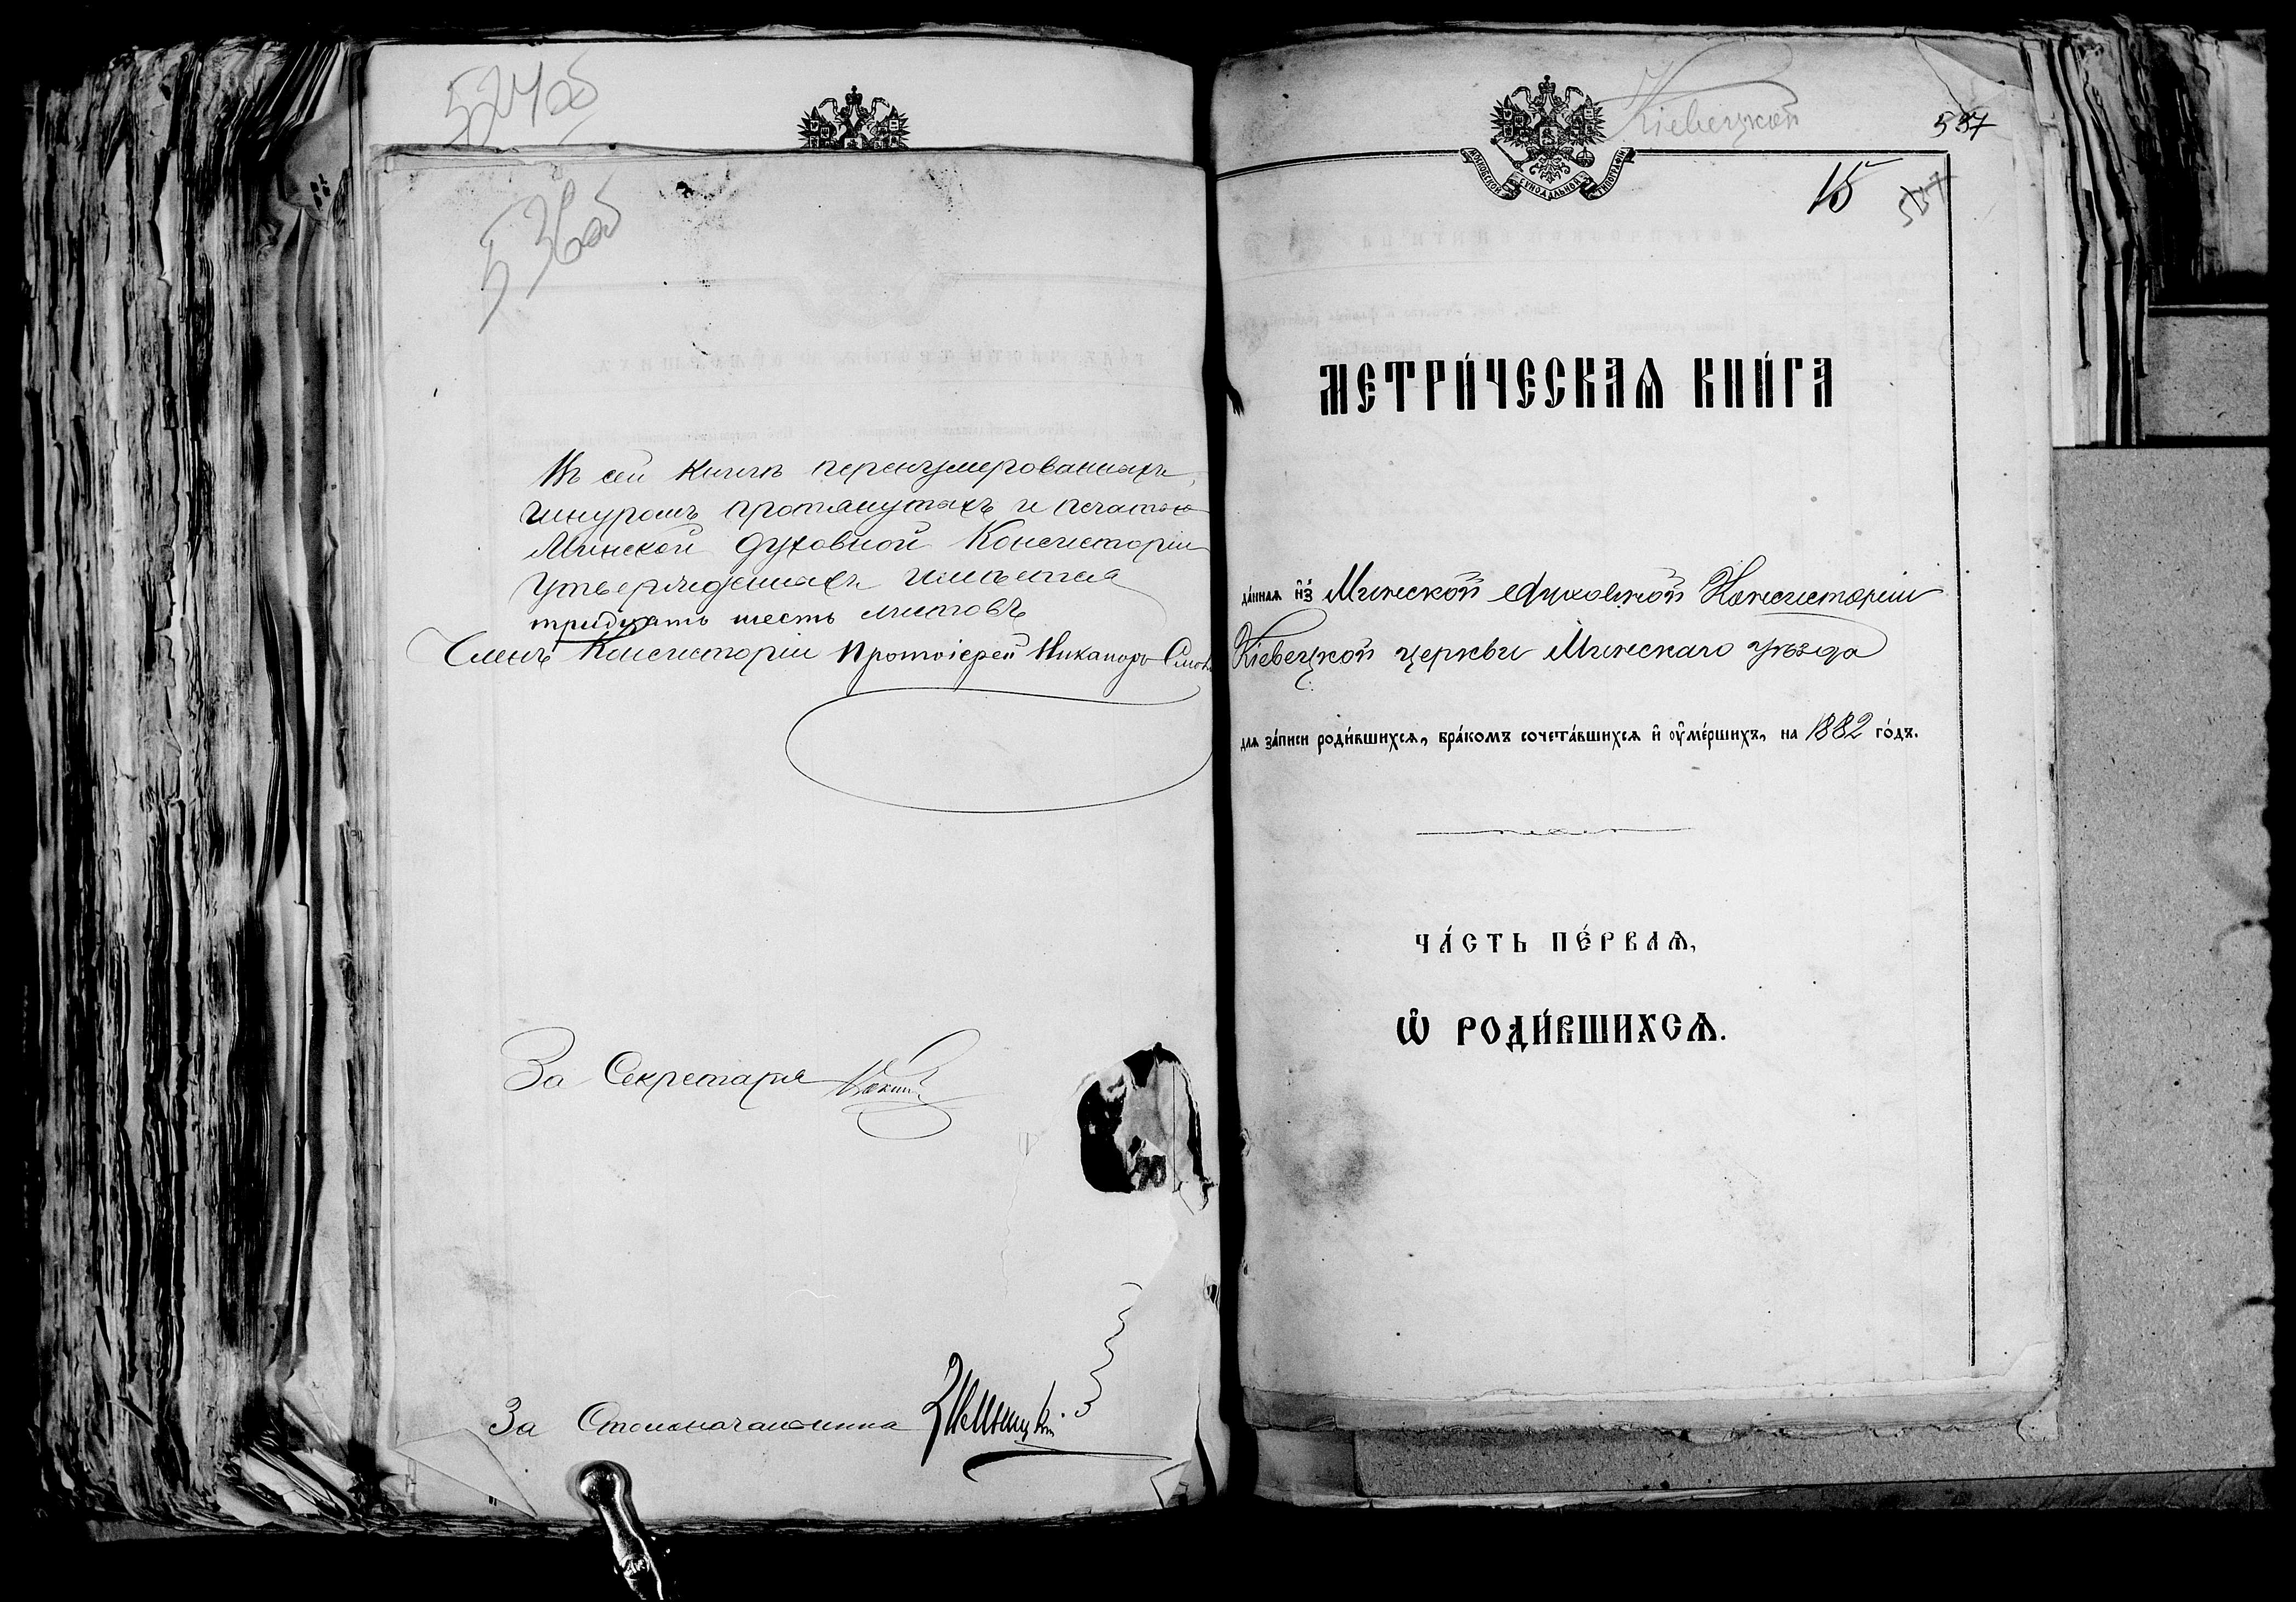 524об
536об
Въ сей книгѣ перенумерованныхъ,
шнуромъ протянутыхъ и печатью
Минской Духовной Консисторіи
утвержденныхъ имѣется
тридцать шесть листовъ
Членъ Консисторіи Протоіерей Никаноръ
За Секретаря
За Столоначальника
Кіевецкой
537
МОСКОВСКОЙ СѴНОДАЛЬНОЙ ТИПОГРАФІИ
15
537
МЕТРИ́ЧЕСКАѦ КНИ́ГА
да́ннаѧ и҆з̾ Минской Духовной Консисторіи
Кіевецкой церкви Минскаго уѣзда
для за́писи роди́вшихсѧ, бра́комъ сочета́вшихсѧ и҆ ᲂу҆ме́ршихъ, на 1882 го́дъ.
ЧА́СТЬ ПЕ́РВАѦ,
Ѽ РОДИ́ВШИХСѦ.